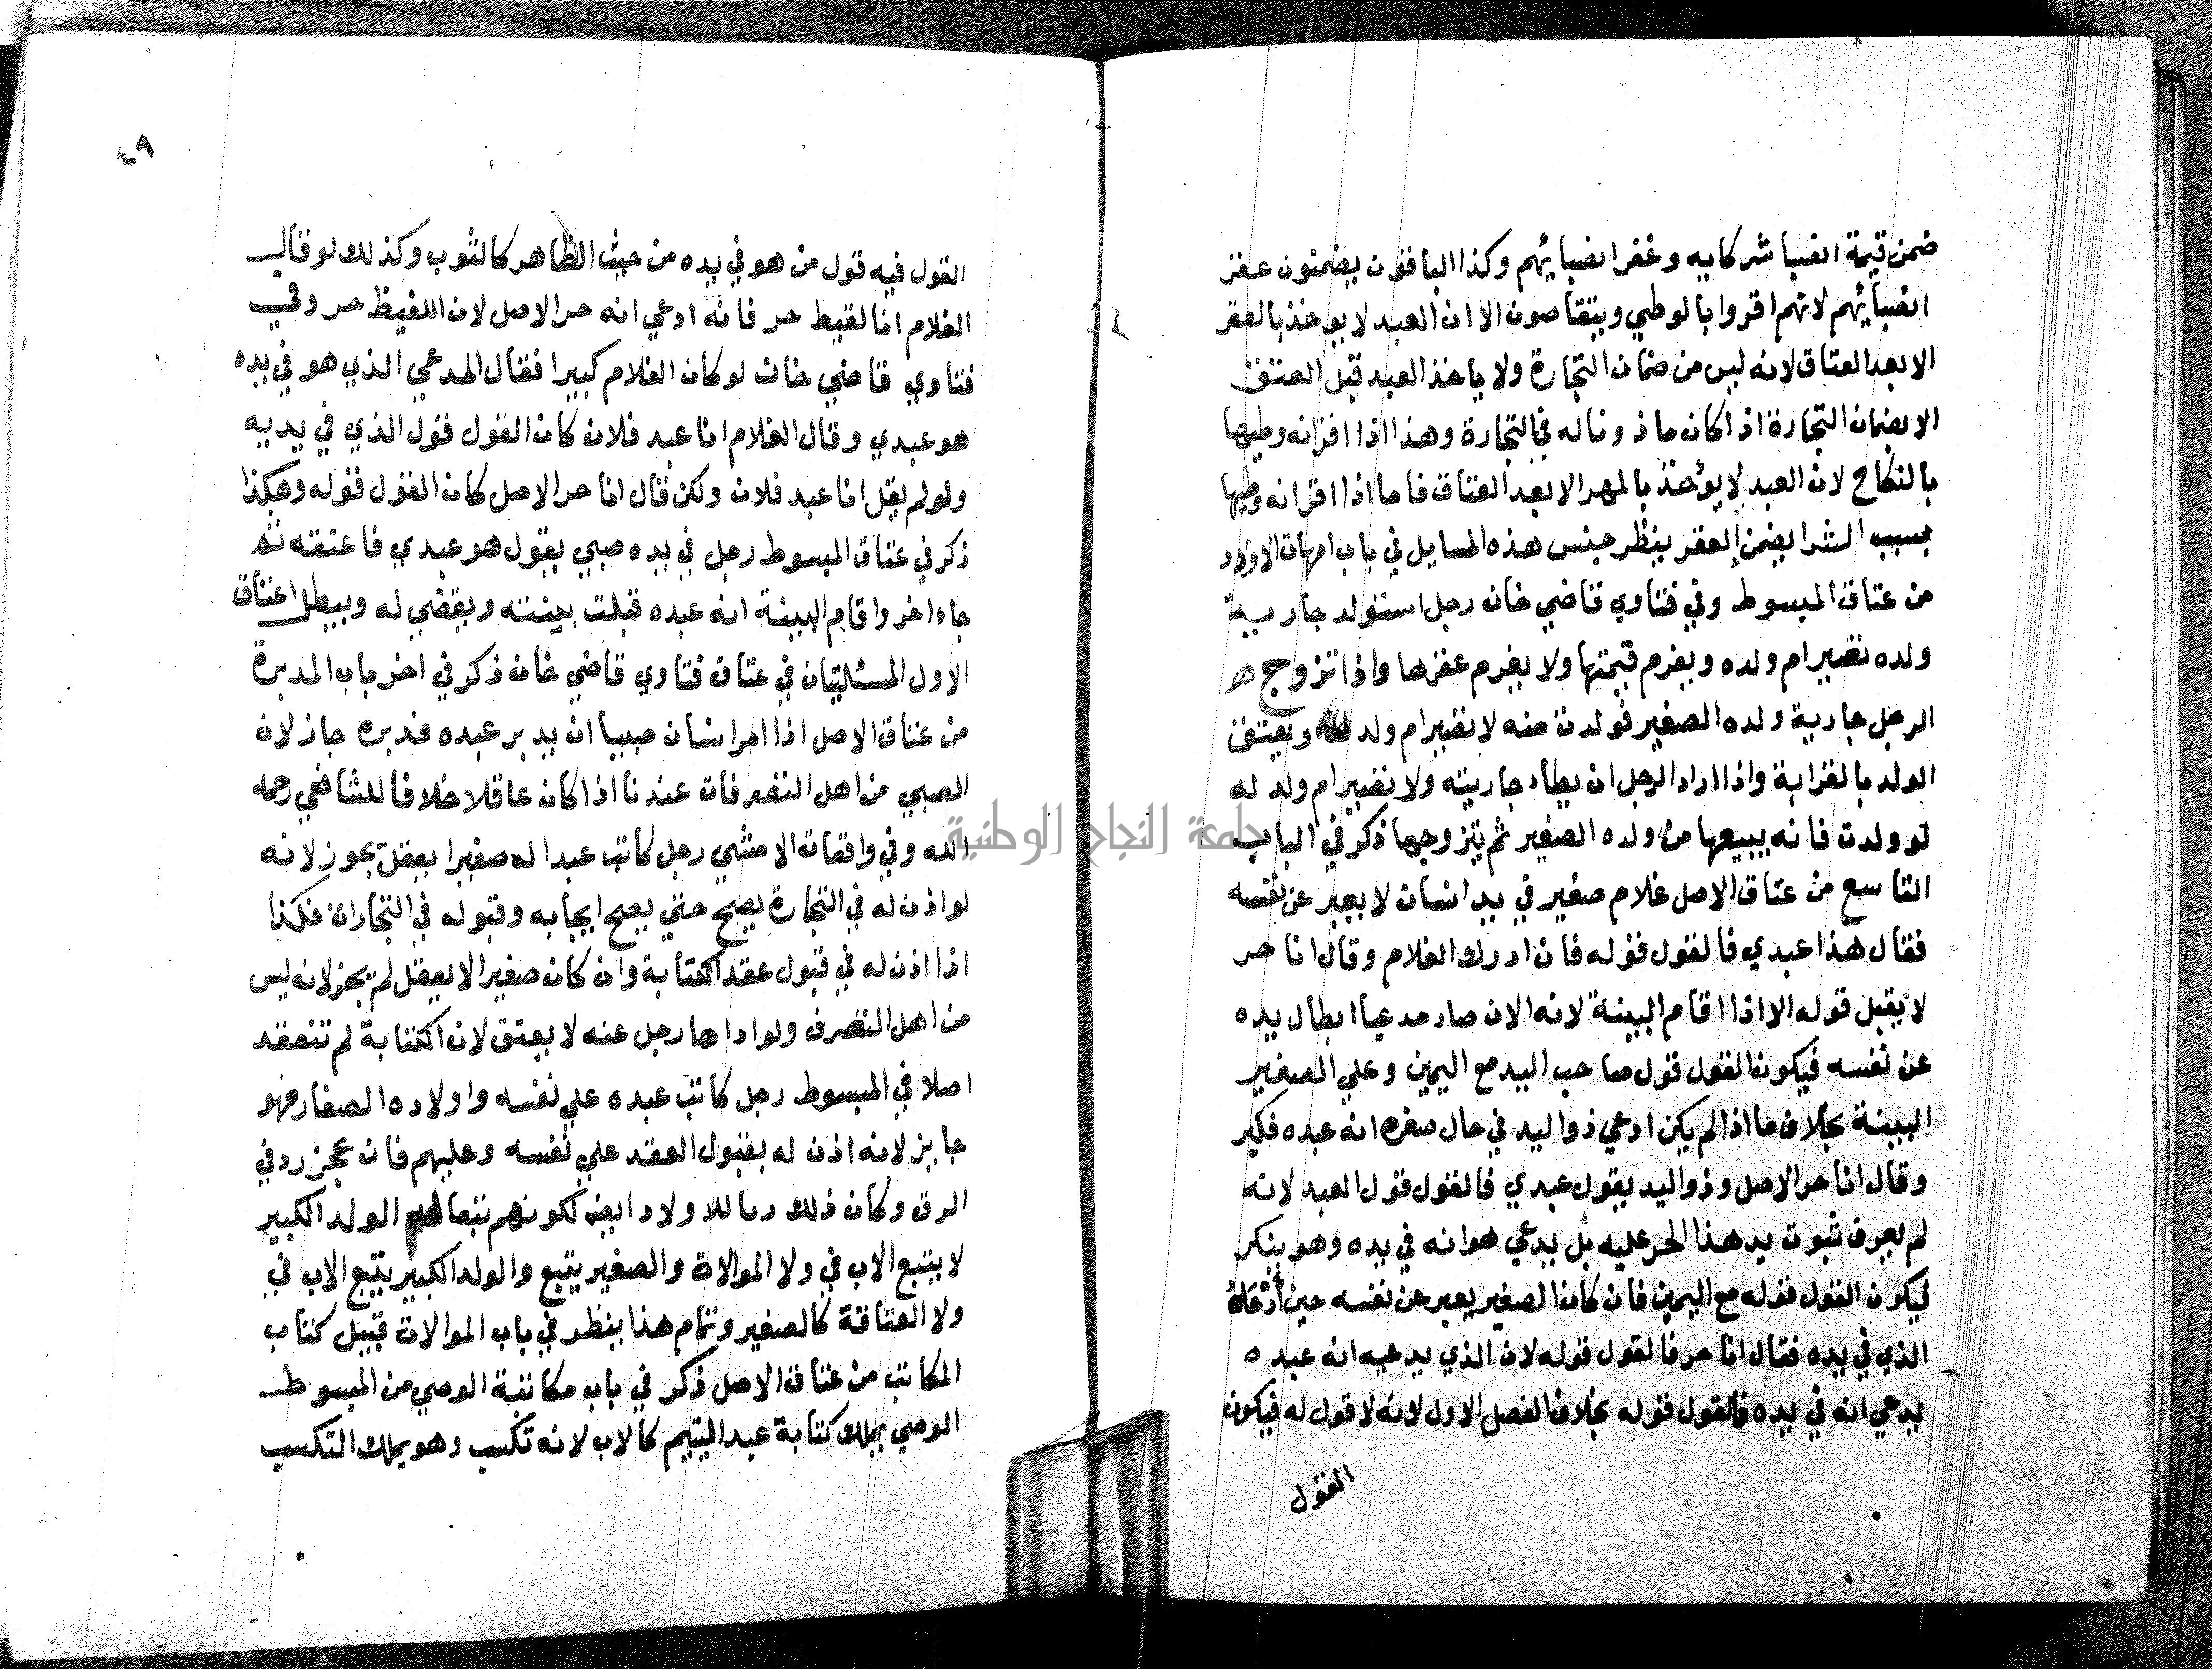 ضمن قيمة انصبا شركايه وعقر انصبايهم وكذا الباقون يضمنون عقر
انصبائهم لانهم اقروا بالوطي ويتقاصون الا ان العبد لا يوخذ بالعقر
الا بعد العتاق لانه ليس من ضمان التجارة ولا ياخذ العبد قبل العتق
الا بضمان التجارة اذا كان ماذونا له في التجارة وهذا اذا اقر انه وطيها
بالنكاح لان العبد لا يؤخذ بالمهر الا بعد العتاق فاما اذا اقر انه وطيها
بسبب الشرا يضمن العقر ينظر جنس هذه المسايل في باب امهات الاولاد
من عتاق المبسوط وفي فتاوي قاضي خان رجل استولد جارية
ولده تصير ام ولده ويغرم قيمتها ولا يغرم عقرها واذا تزوج
الرجل جارية ولده الصغير فولدت منه لا تصير ام ولد له ويعتق
الولد بالقرابة واذا اراد الرجل ان يطاء جاريته ولا تصير ام ولد له
لو ولدت فانه يبيعها من ولده الصغير ثم يتزوجها ذكر في الباب
التاسع من عتاق الاصل غلام صغير في يد انسان لا يعبر عن نفسه
فقال هذا عبدي فالقول قوله فان ادرك الغلام وقال انا حر
لا يقبل قوله الا اذا اقام البينة لانه الان صار مدعيا ابطال يده
عن نفسه فيكون القول قول صاحب اليد مع اليمين وعلي الصغير
البينة بخلاف ما اذا لم يكن ادعي ذو اليد في حال صغره انه عبده فكبر
وقال انا حر الاصل وذو اليد يقول عبدي فالقول قول العبد لانه
لم يعرف ثبوت يد هذا الحر عليه بل يدعي هو انه في يده وهو ينكر
فيكون القول قوله مع اليمين فان كان الصغير يعبر عن نفسه حين ادعاه
الذي في يده فقال انا حر فالقول قوله لان الذي يدعيه انه عبده
يدعي انه في يده فالقول قوله بخلاف الفصل الاول لانه لا قول له فيكون
القول
٤٩
القول فيه قول من هو في يده من حيث الظاهر كالثوب وكذلك لو قال
الغلام انا لقيط حر فانه ادعي انه حر الاصل لان اللقيط حر وفي
فتاوي قاضي خان لو كان الغلام كبيرا فقال المدعي الذي هو في يده
هو عبدي وقال الغلام انا عبد فلان كان القول قول الذي في يديه
ولو لم يقل انا عبد فلان ولكن قال انا حر الاصل كان القول قوله وهكذا
ذكر في عتاق المبسوط رجل في يده صبي يقول هو عبدي فاعتقه ثم
جاء اخر واقام البينة انه عبده قبلت بينته ويقضي له ويبطل اعتاق
الاول المسئلتان في عتاق فتاوي قاضي خان ذكر في اخر باب المدبرة
من عتاق الاصل اذا امر انسان صبيا ان يدبر عبده فدبره جاز لان
الصبي من اهل التصرفات عندنا اذا كان عاقلا خلافا للشافعي رحمه
الله وفي واقعات الامشي رجل كاتب عبدا له صغيرا يعقل يجوز لانه
لو اذن له في التجارة يصح حتي يصح ايجابه وقبوله في التجارات فكذا
اذا اذن له في قبول عقد الكتابة وان كان صغيرا لا يعقل لم يجز لانه ليس
من اهل التصرف ولو اداها رجل عنه لا يعتق لان الكتابة لم تنعقد
اصلا في المبسوط رجل كاتب عبده علي نفسه واولاده الصغار فهو
جايز لانه اذن له بقبول العقد علي نفسه وعليهم فان عجز رد في
الرق وكان ذلك ردا للاولاد ايضا لكونهم تبعا له الولد الكبير
لا يتبع الاب في ولا الموالاة والصغير يتبع والولد الكبير يتبع الاب في
ولا العتاقة كالصغير وتمام هذا ينظر في باب الموالات قبيل كتاب
المكاتب من عتاق الاصل ذكر في باب مكاتبة الوصي من المبسوط
الوصي يملك كتابة عبد اليتيم كالاب لانه تكسب وهو يملك التكسب
جامعة النجاح الوطنية